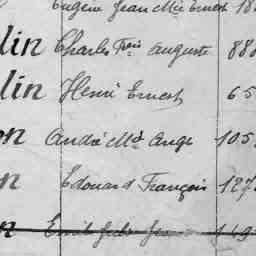 Eugène Jean Mie Ernest 18
lin Charles Frois Auguste 888
lin Henri Ernest 65
on André Md Ange 105
n Edouard François 127
n Emile Jules 149